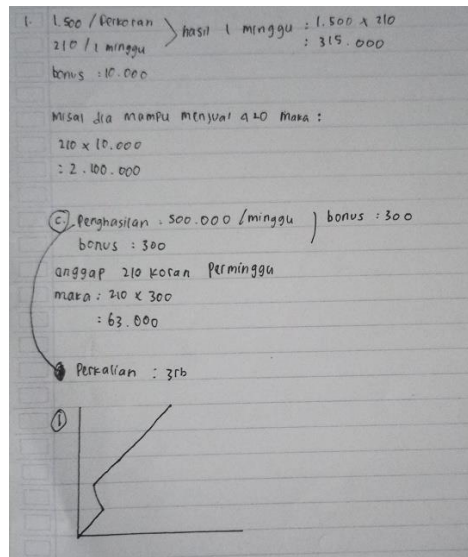 1. 1.500 / Perkoran
210 / 1 minggu
hasil 1 minggu : 1.500 x 210
: 315.000
bonus : 10.000
Misal dia mampu menjual 420 maka :
210 x 10.000
: 2.100.000
C. Penghasilan : 500.000 / minggu
bonus : 300
bonus : 300
anggap 210 koran Perminggu
maka : 210 x 300
: 63.000
Perkalian : 3rb
1